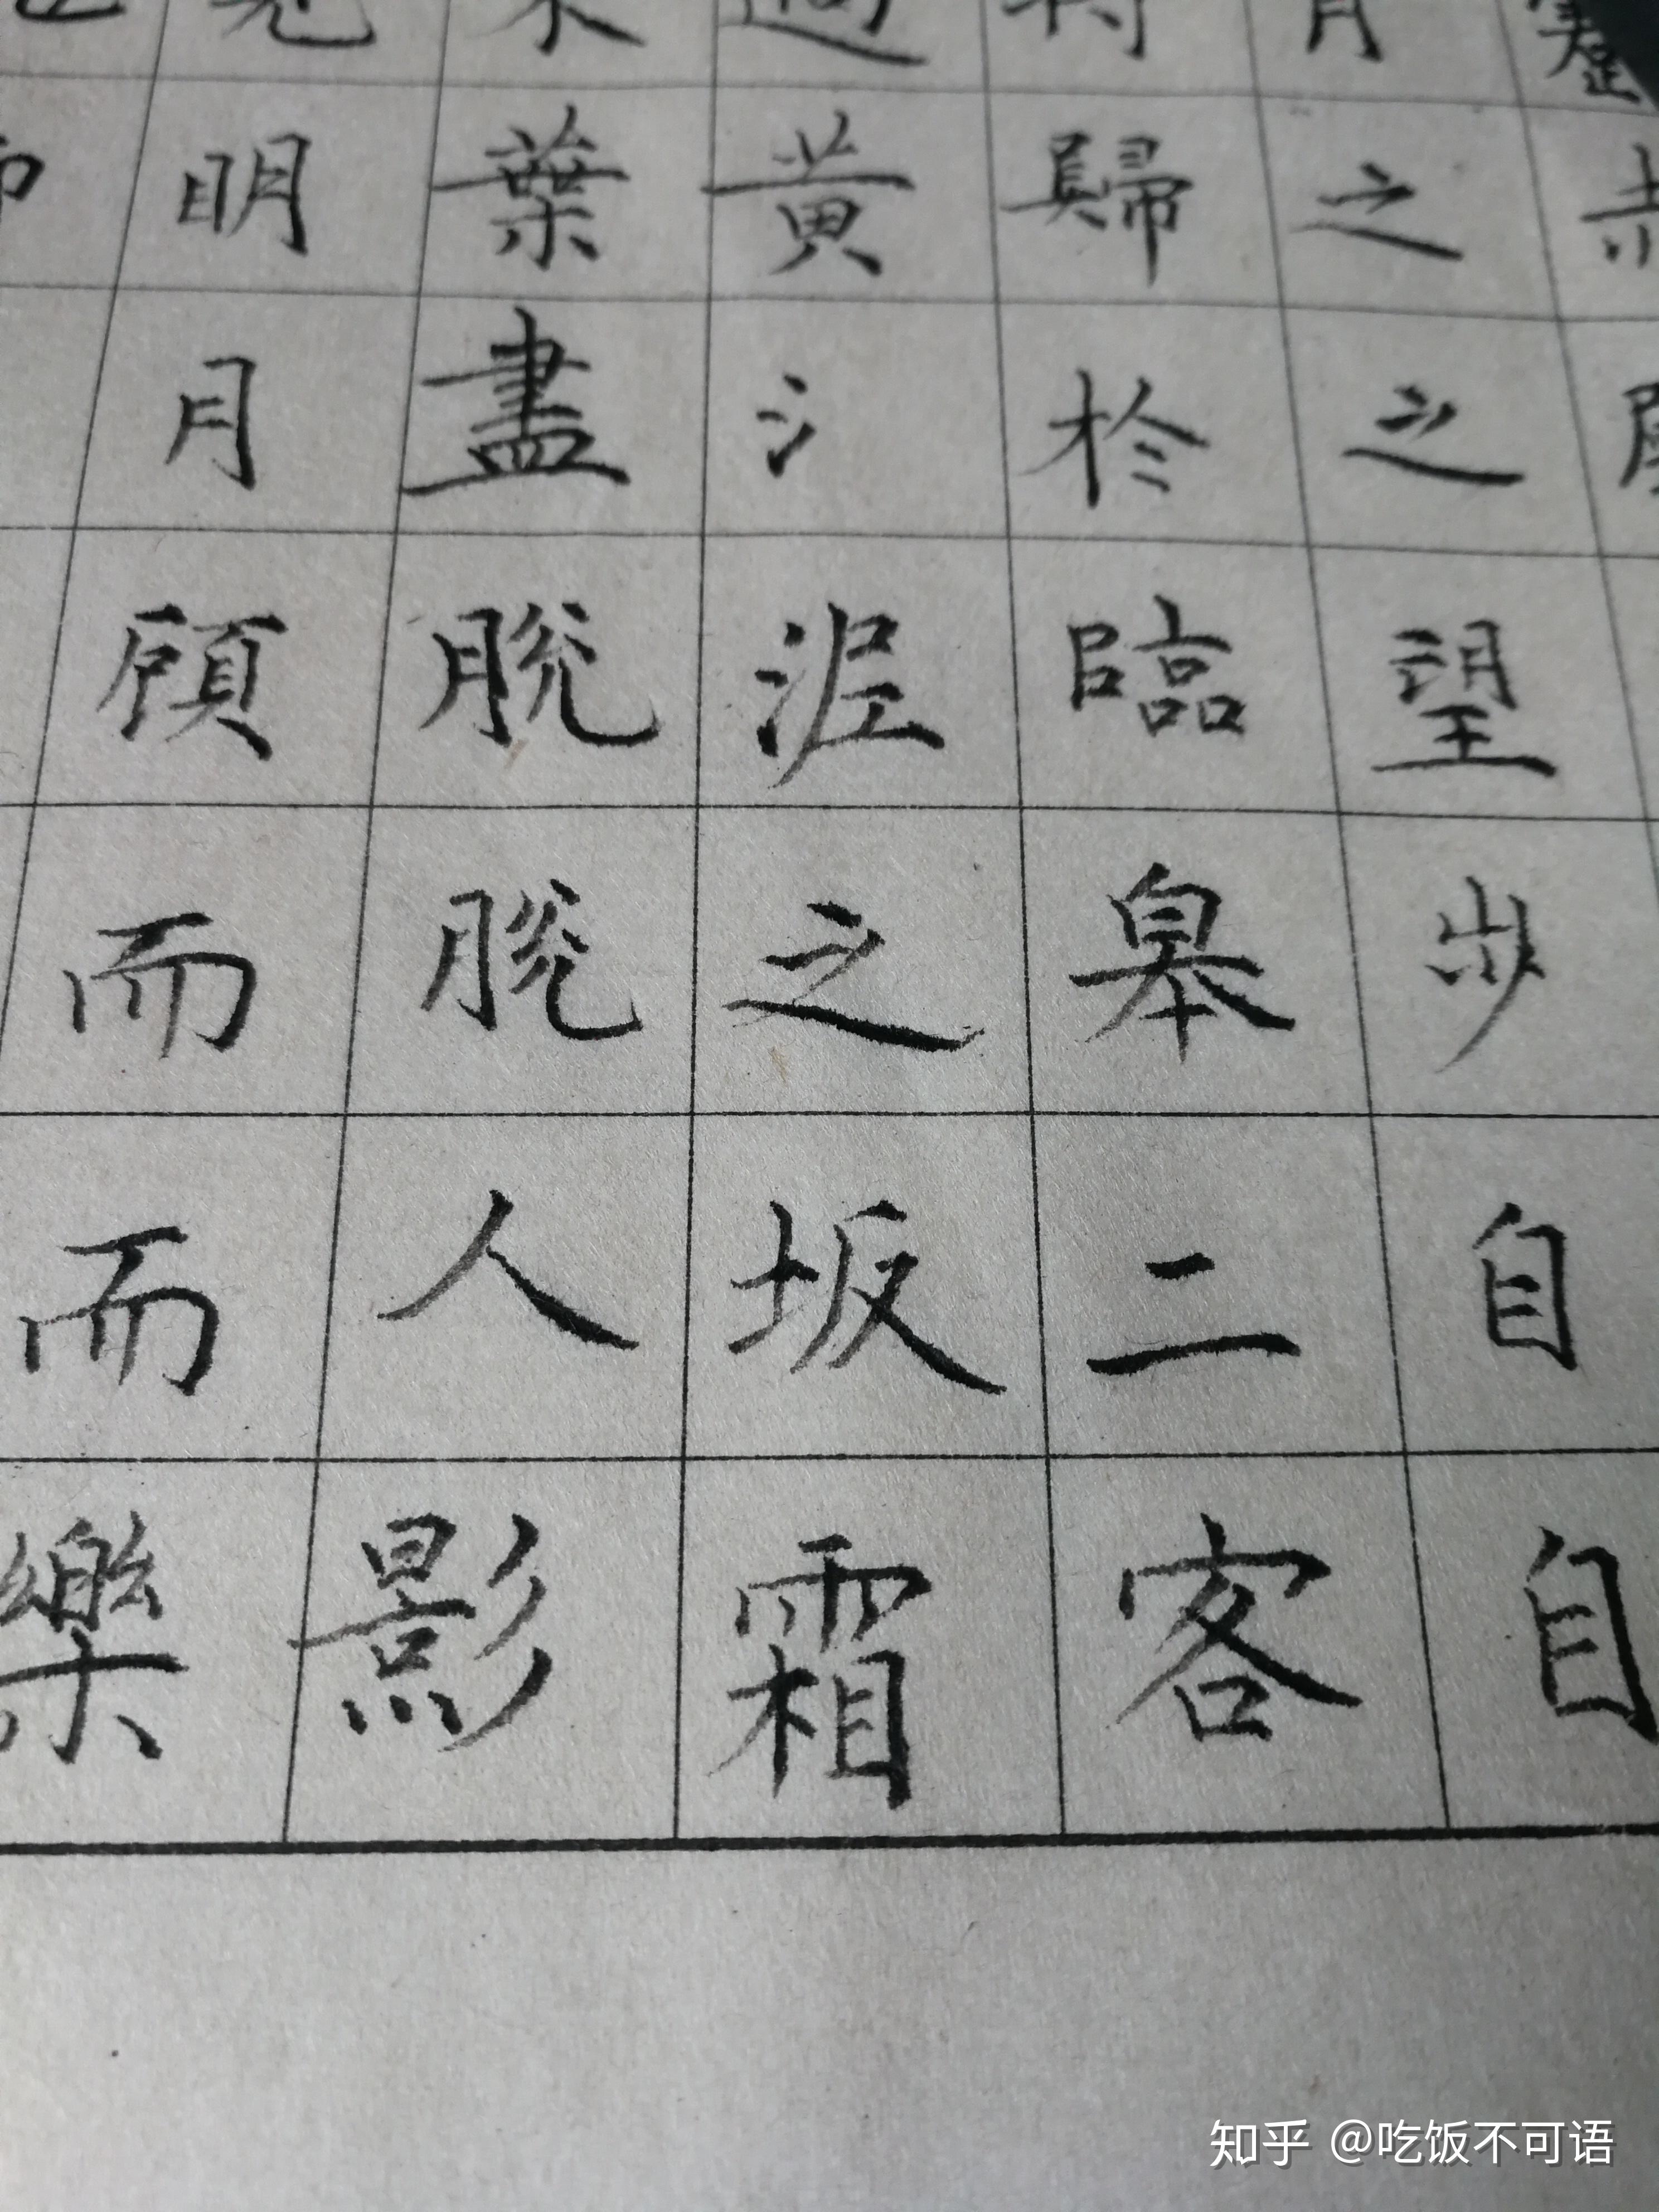 月之之望步自自
將歸於臨皋二客
過黃氵泥之坂霜
木葉盡脫脫人影
見明月顧而而樂
知乎 @吃饭不可语